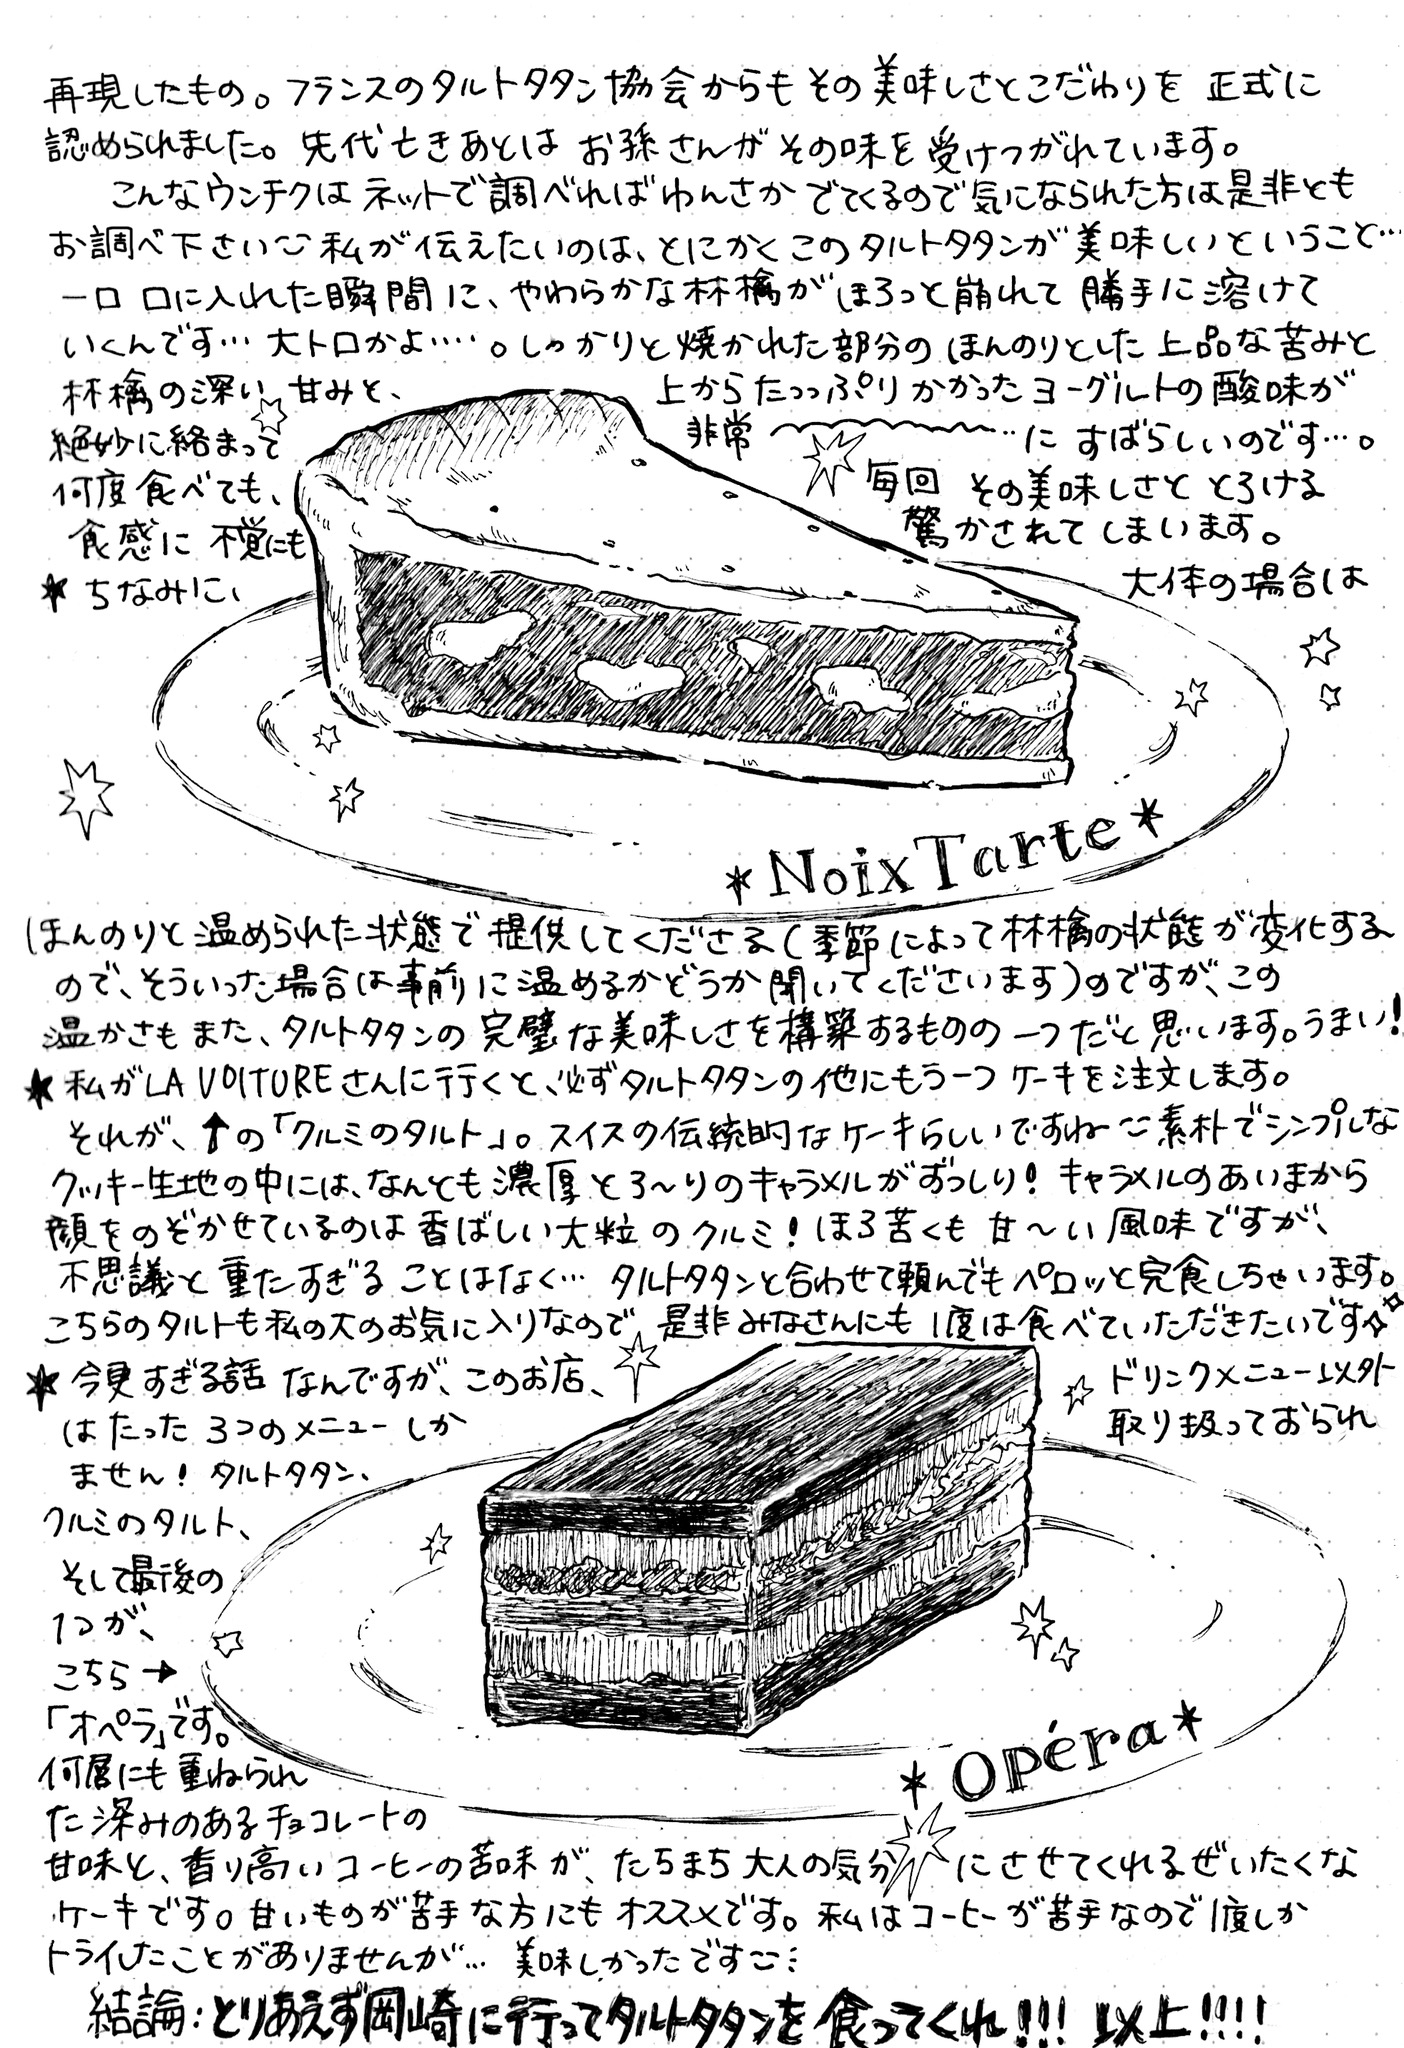 再現したもの。フランスのタルトタタン協会からもその美味しさとこだわりを正式に
認められました。先代亡きあとはお孫さんがその味を受けつがれています。
こんなウンチクはネットで調べればわんさかでてくるので気になられた方は是非とも
お調べ下さい 私が伝えたいのは、とにかくこのタルトタタンが美味しいということ…
一口 口に入れた瞬間に、やわらかな林檎がほろっと崩れて勝手に溶けて
いくんです… 大トロかよ‥‥。しっかりと焼かれた部分のほんのりとした上品な苦みと
林檎の深い甘みと、上からたっっぷりかかったヨーグルトの酸味が
絶妙に絡まって 非常〜〜〜に すばらしいのです…。
何度食べても、毎回その美味しさととろける
食感に不覚にも驚かされてしまいます。
★ちなみに、大体の場合は
*Noix Tarte*
ほんのりと温められた状態で提供してくださる(季節によって林檎の状態が変化する
ので、そういった場合は事前に温めるかどうか聞いてくださいます)のですが、この
温かさもまた、タルトタタンの完璧な美味しさを構築するものの一つだと思います。うまい!
★私がLA VOITUREさんに行くと、必ずタルトタタンの他にもう一つケーキを注文します。
それが、↑の「クルミのタルト」。スイスの伝統的なケーキらしいですね 素朴でシンプルな
クッキー生地の中には、なんとも濃厚とろ〜りのキャラメルがずっしり! キャラメルのあいまから
顔をのぞかせているのは香ばしい大粒のクルミ! ほろ苦くも甘〜い風味ですが、
不思議と重たすぎることはなく… タルトタタンと合わせて頼んでもペロッと完食しちゃいます。
こちらのタルトも私の大のお気に入りなので、是非みなさんにも1度は食べていただきたいです✧
★今更すぎる話なんですが、このお店、ドリンクメニュー以外
はたった3つのメニューしか取り扱っておられ
ません! タルトタタン、
クルミのタルト、
そして最後の
1つが、
こちら→
「オペラ」です。
*Opéra*
何層にも重ねられ
た深みのあるチョコレートの
甘味と、香り高いコーヒーの苦味が、たちまち大人の気分にさせてくれるぜいたくな
ケーキです。甘いものが苦手な方にもオススメです。私はコーヒーが苦手なので1度しか
トライしたことがありませんが… 美味しかったです
結論:とりあえず岡崎に行ってタルトタタンを食ってくれ!!! 以上!!!!